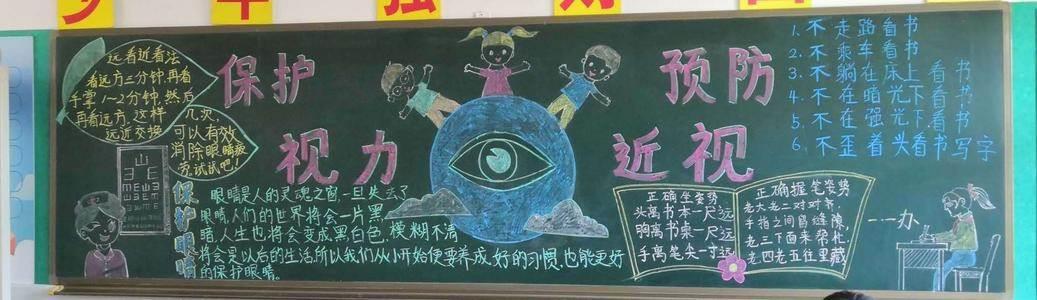 远看近看法
看远方三分钟,再看
手掌1~2分钟,然后
再看远方.这样
远近交换
几次,
可以有效
消除眼睛疲
劳试试吧!
保护
视力
预防
近视
1.不走路看书
2.不乘车看书
3.不躺在床上看书
4.不在暗光下看书
5.不在强光下看书
6.不歪着头看书写字
保护眼睛
眼睛是人的灵魂之窗,一旦失去了
眼睛,人们的世界将会一片黑
暗,人生也将会变成黑白色,模糊不清
将会是以后的生活所以我们从小开始便要养成好的习惯,也能更好
的保护眼睛。
正确坐姿势
头离书本一尺远
胸离书桌一尺远
手离笔尖一寸远
正确握笔姿势
老大老二对对争,
手指之间留缝隙
老三下面来帮忙
老四老五往里藏